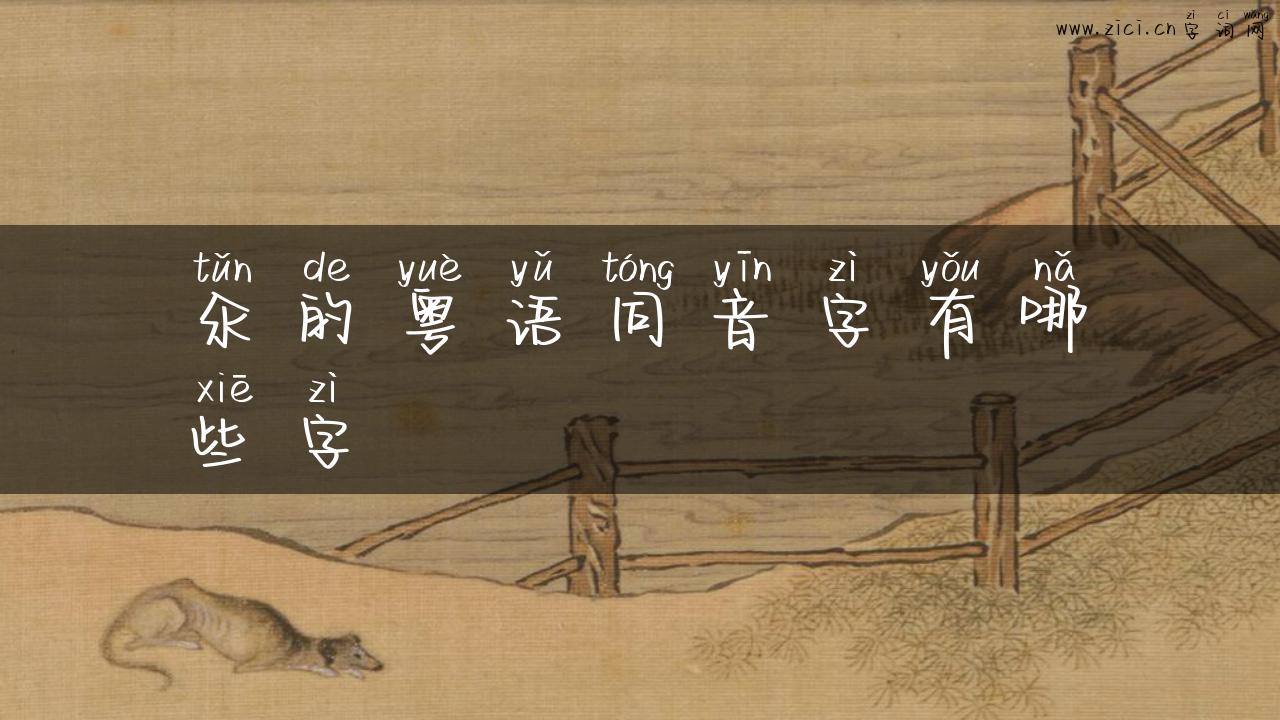 zì cí wǎng
www.zici.cn 字词网
tǔn de yuè yǔ tóng yīn zì yǒu nǎ
氽的粤语同音字有哪
xiē zì
些字